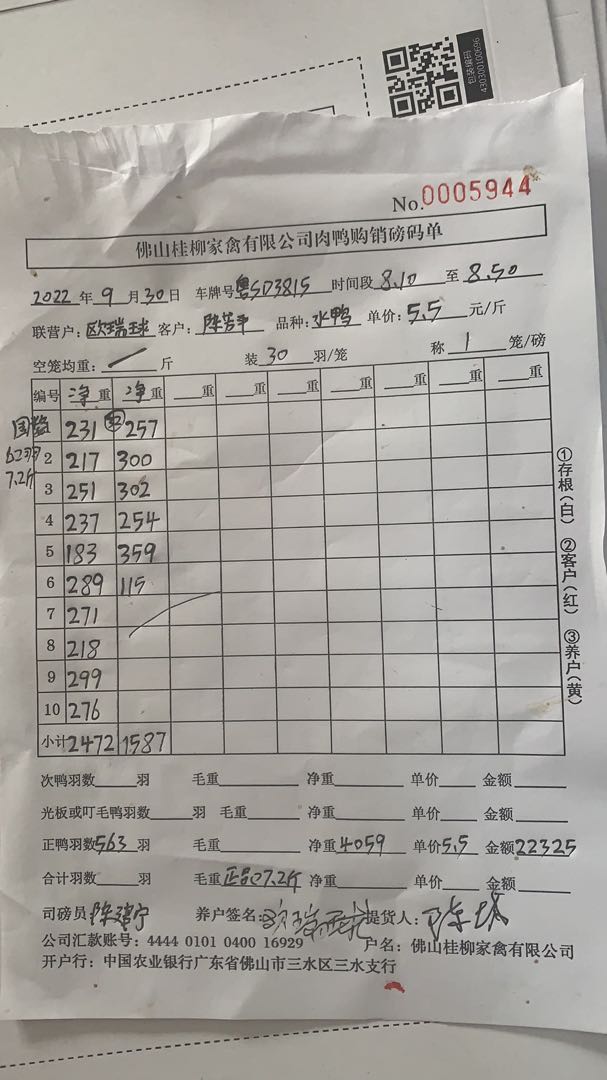 包装编码
430300100696
No.0005944
佛山桂柳家禽有限公司肉鸭购销磅码单
2022年9月30日 车牌号粤SD3815 时间段8.10至8.50
联营户:欧瑞球 客户: 品种:水鸭 单价:5.5元/斤
空笼均重: 斤 装30羽/笼 称1笼/磅
编号 净重 净重 重 重 重 重 重 重
231 257
2 217 300
7.2斤
3 251 302
4 237 254
5 183 359
6 289 115
7 271
8 218
9 299
10 276
小计 2472 1587
①存根(白) ②客户(红) ③养户(黄)
次鸭羽数 羽 毛重 净重 单价 金额
光板或叮毛鸭羽数 羽 毛重 净重 单价 金额
正鸭羽数563羽 毛重 净重4059 单价5.5 金额22325
合计羽数 羽 毛重 7.2斤 净重 单价 金额
司磅员 养户签名: 提货人:
公司汇款账号: 4444 0101 0400 16929 户名: 佛山桂柳家禽有限公司
开户行: 中国农业银行广东省佛山市三水区三水支行